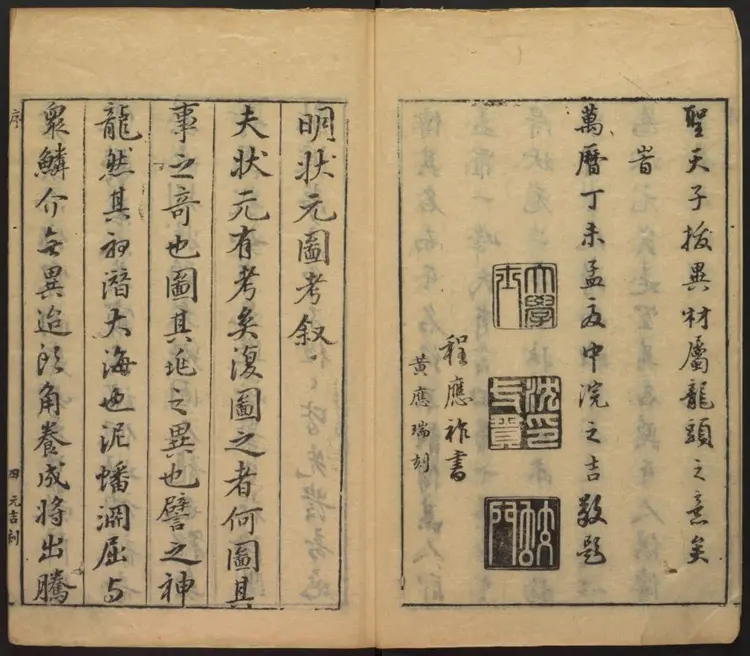 聖天子拔異材屬龍頭之意矣
旹
萬曆丁未孟夏中浣之吉敬題
大學士
沈印一貫
蛟門
程應祚書
黃應瑞刻
明狀元圖考叙
夫狀元有考矣復圖之者何圖其
事之奇也圖其兆之異也譬之神
龍然其初潛大海也泥蟠淵屈与
眾鱗介無異迨頭角養成將出騰
序
四
元吉刻